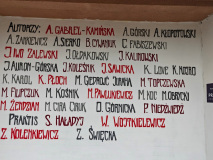 AUTORZY: A. GABRIEL-KAMIŃSKA A. GÓRSKI A. KŁOPOTOWSKI
A. ZARKIEWICZ A. SIEŃKO C. FABISZEWSKI
IWO ZALEWSKI J. OLPAKOWSKI J. KALINOWSKI
J. AUROŃ-GÓRSKA J. KOLEŚNIK J. SAWICKA K. LOVE
K. KAROL K. PŁOCH M. GEDROJC JURAHA M. TOPCZEWSKA
M. FILIPCZUK M. KOŚNIK M. PAWLUKIEWICZ M. KOT M. OBRYCKI
M. ŻENDZIAN M. CIRA CHLUK O. GÓRNICKA P. NIEDŹWIEDŹ
PRAKTIS S. HAŁADYJ W. WOJTKIELEWICZ
Z. KOLENKIEWICZ Z. ŚWIĘCKA